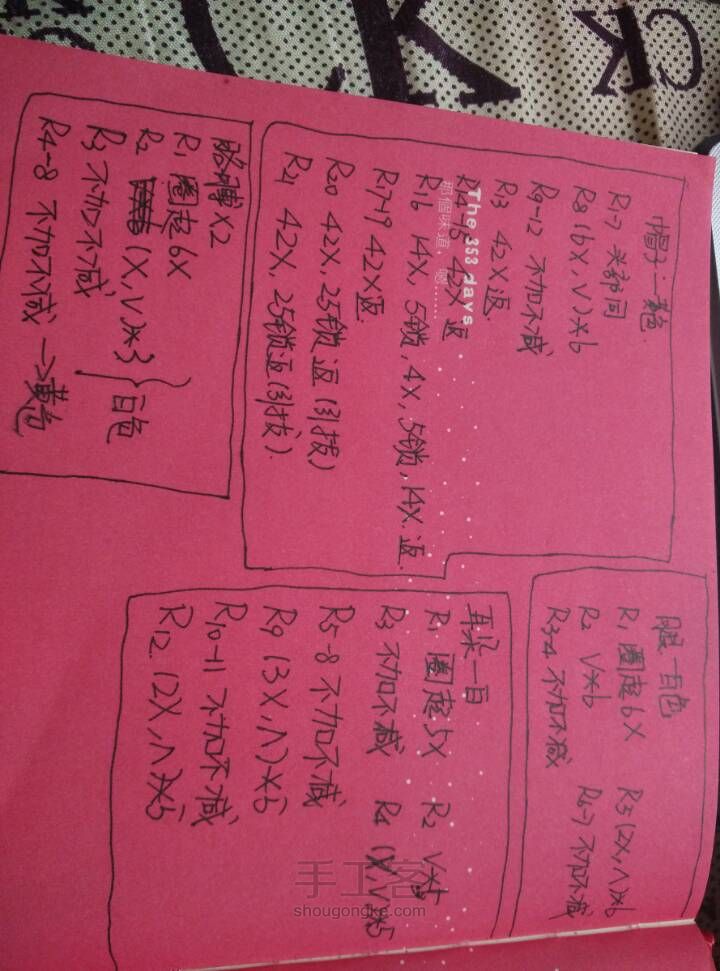 帽子—黄色.
R1-7 头部同
R8 (6X, V)*6
R9-12 不加不减
R3 42X返
R14-15 42X返
R16 14X, 5锁, 4X, 5锁, 14X. 返.
R17-19 42X返.
R20 42X, 25锁返(引拔)
R21 42X, 25锁返(引拔).
The 353 days
胳膊X2
R1 圈起6X
R2 (X, V)*3 } 白色
R3 不加不减
R4-8 不加不减 →黄色
腿—白色
R1 圈起6X R5 (2X, Λ)*6
R2 V*6 R6-7 不加不减
R3-4 不加不减
耳朵—白
R1 圈起5X R2 V*5
R3 不加不减 R4 (X, V)*5
R5-8 不加不减
R9 (3X, Λ)*5
R10-11 不加不减
R12. (2X, Λ)*5
手工客
shougongke.com